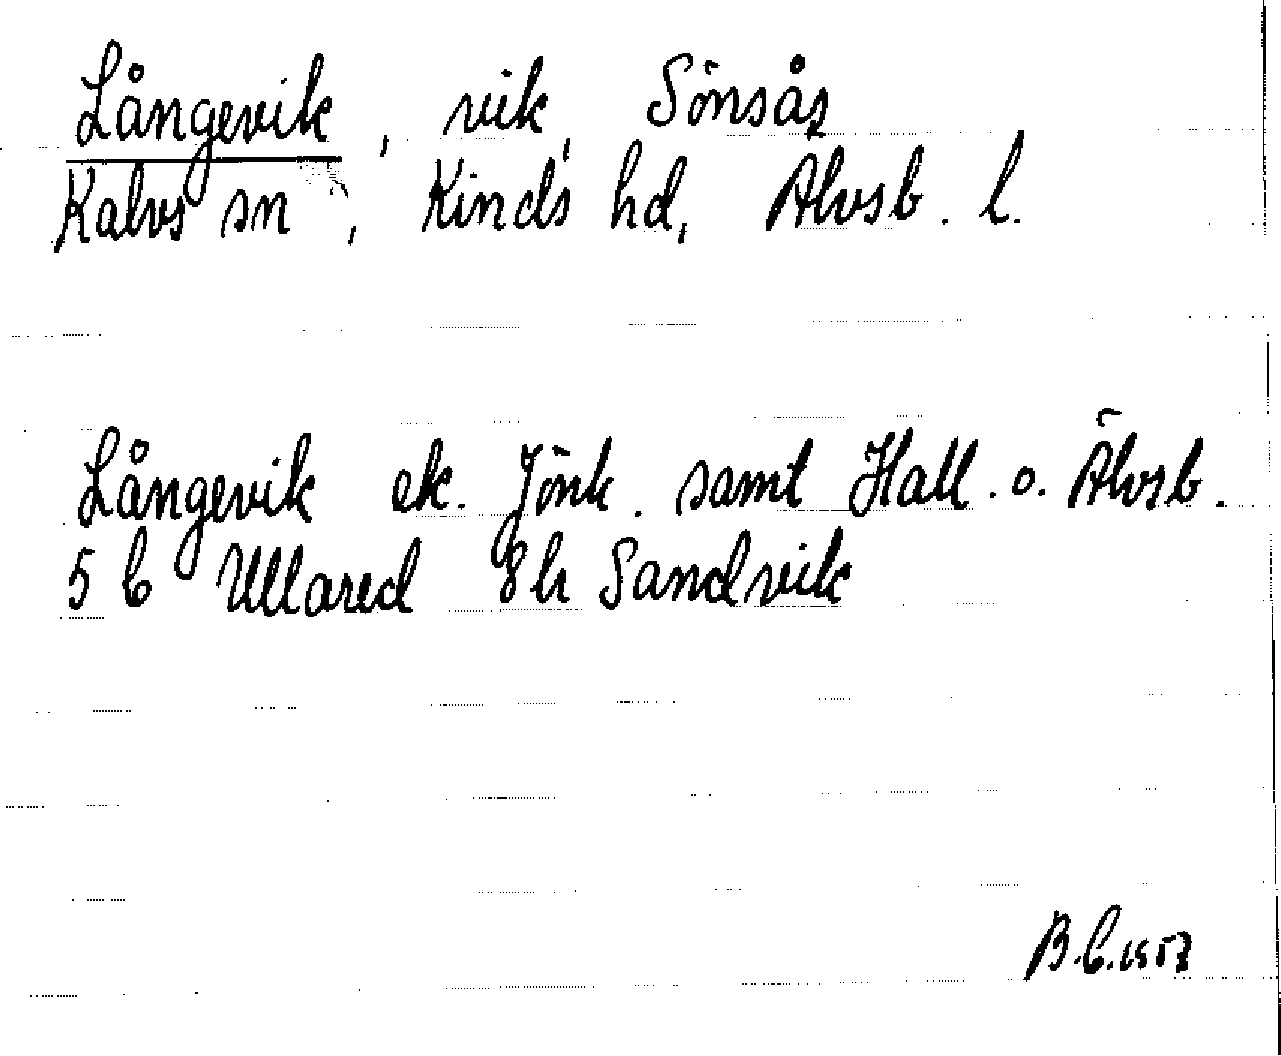 Långevik, vik, Sönsås
Kalvs sn, Kinds hd, Älvsb. l.
Långevik ek. Jönk. samt Hall. o. Älvsb.
5 b Ullared 8h Sandvik
B.C. 1957